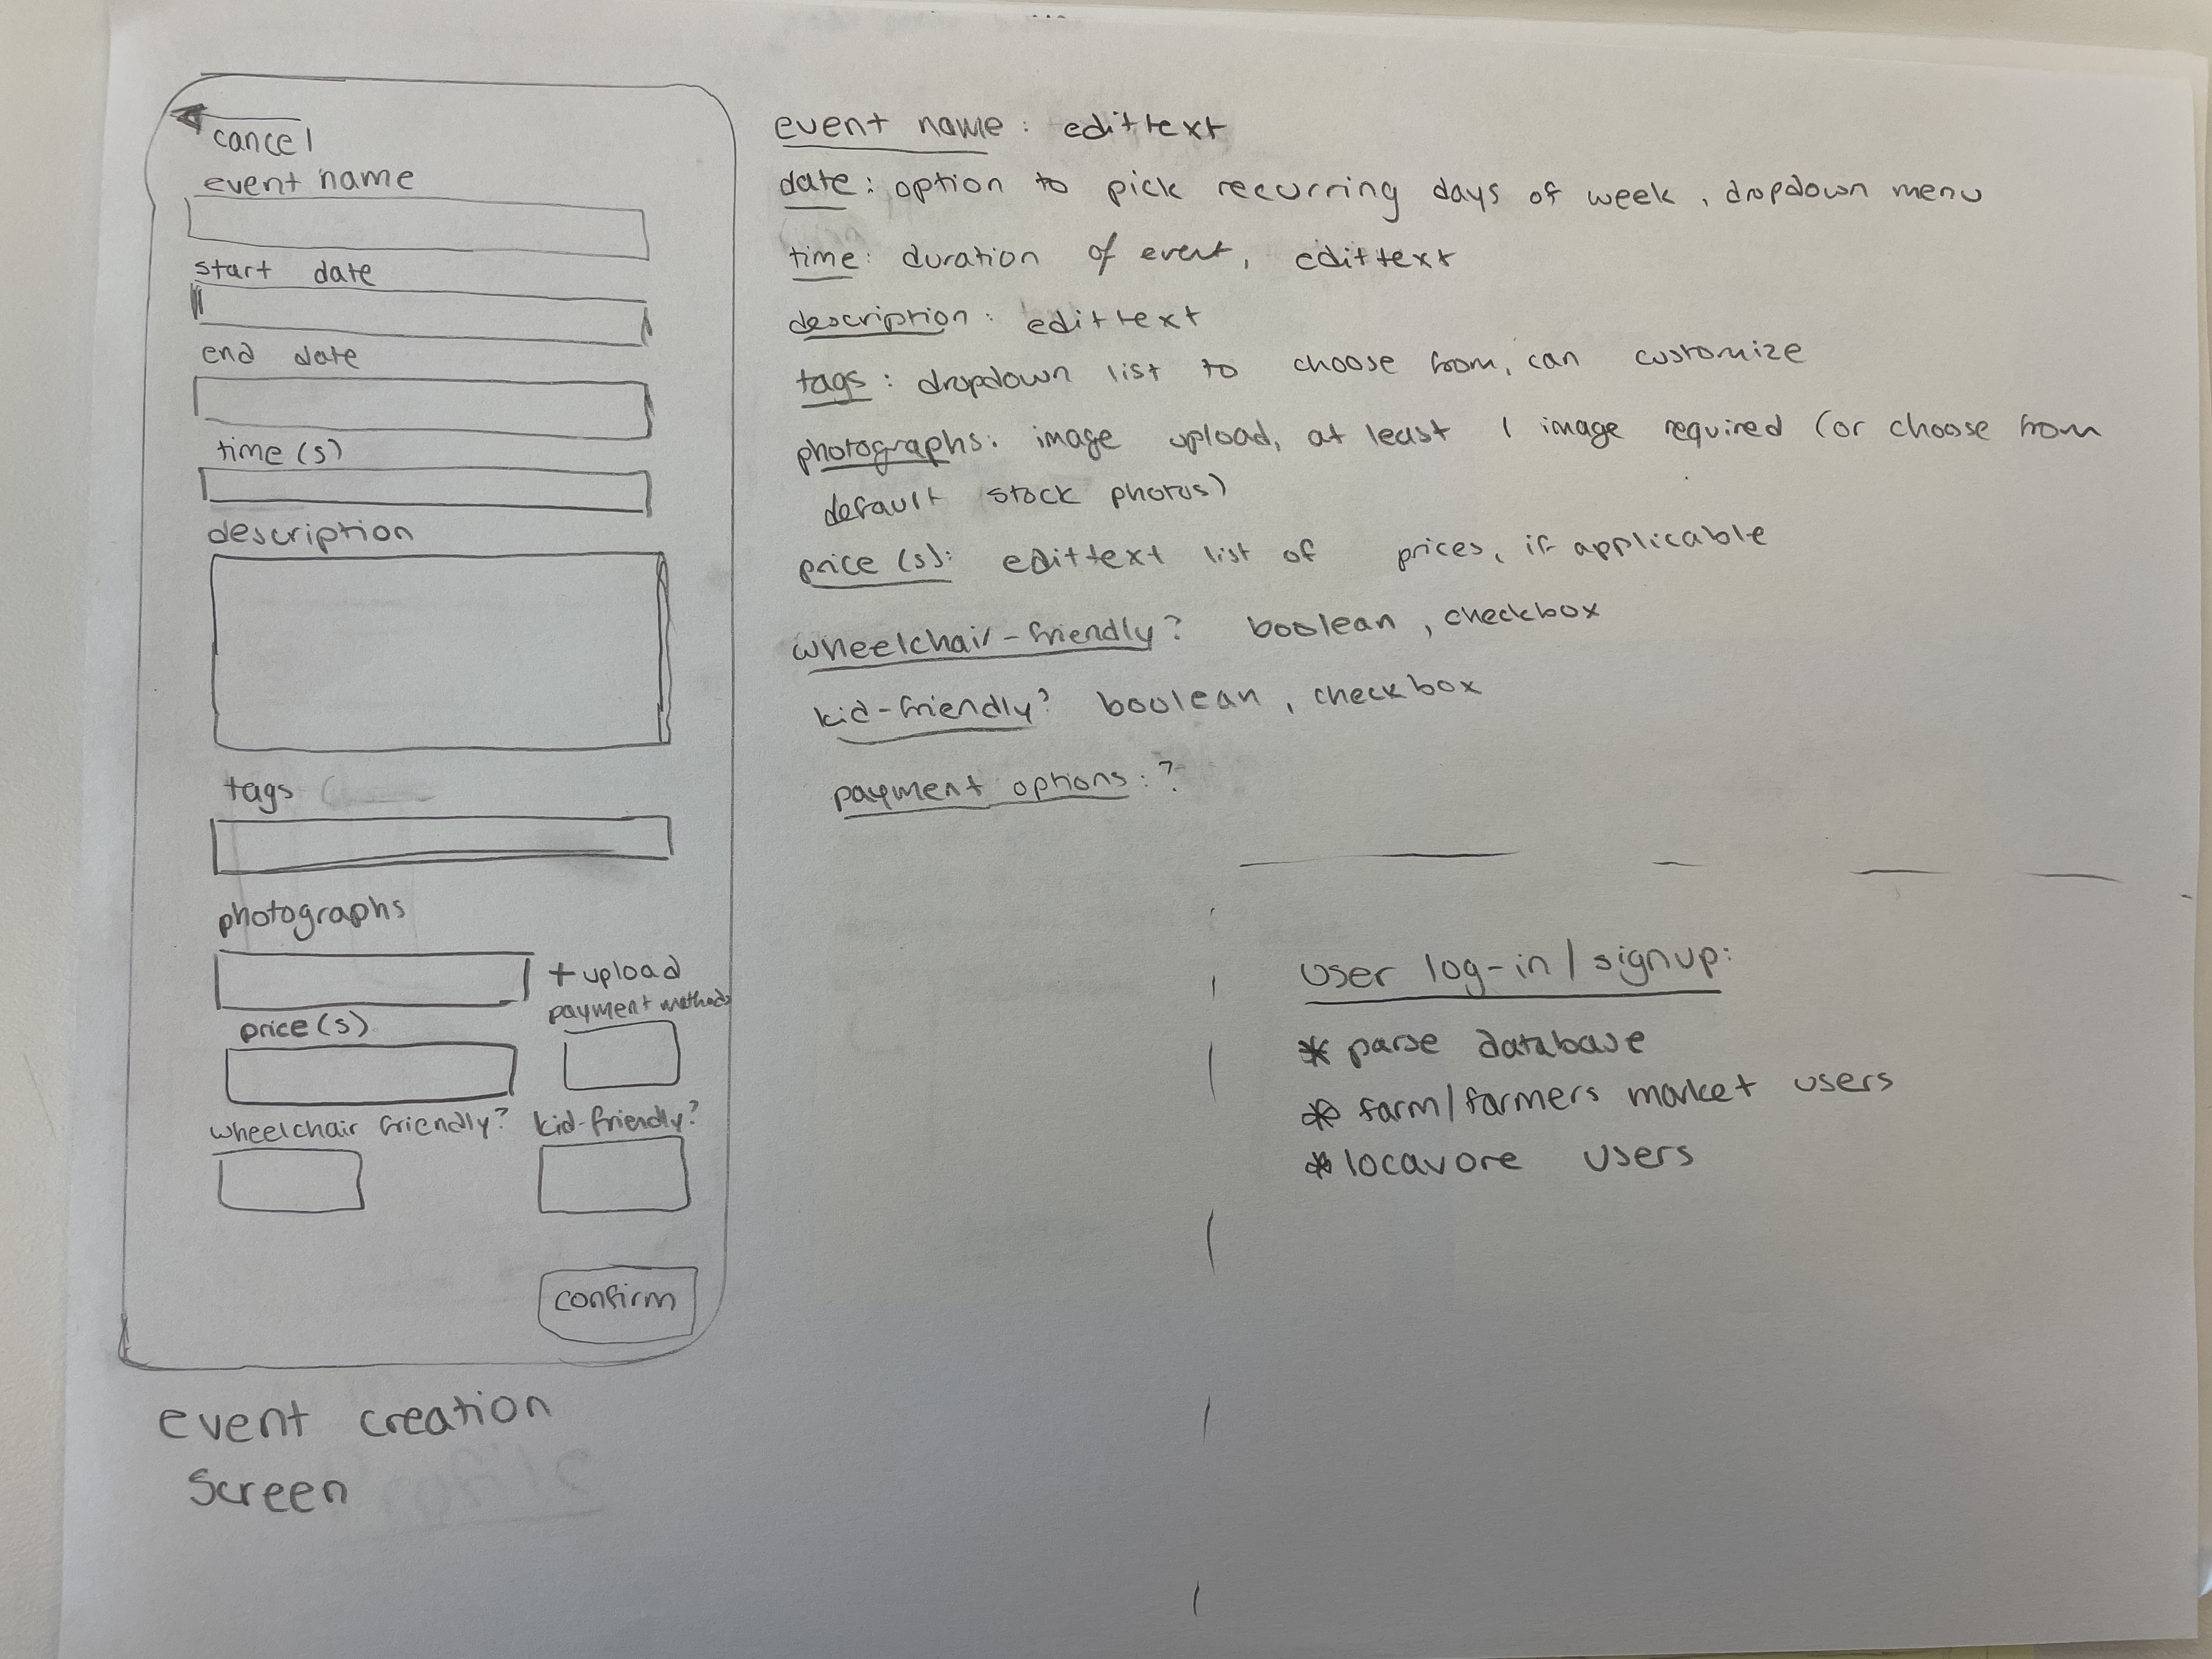 cancel
event name
start date
end date
time(s)
description
tags
photographs
+ upload
payment methods
price(s)
wheelchair friendly? kid-friendly?
confirm
event creation
screen
event name: edittext
date: option to pick recurring days of week, dropdown menu
time: duration of event, edittext
description: edittext
tags: dropdown list to choose from, can customize
photographs: image upload, at least 1 image required (or choose from
default stock photos)
price(s): edittext list of prices, if applicable
wheelchair-friendly? boolean, checkbox
kid-friendly? boolean, checkbox
payment options: ?
user log-in/signup:
* parse database
* farm/farmers market users
* locavore users